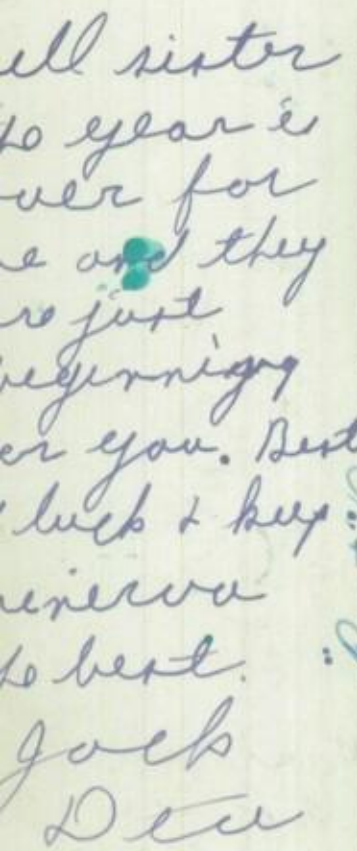 ell sister
o year is
ver for
e and they
re just
eginning
or you. Best
luck & keep
inerva
o best.
Jack
Dew